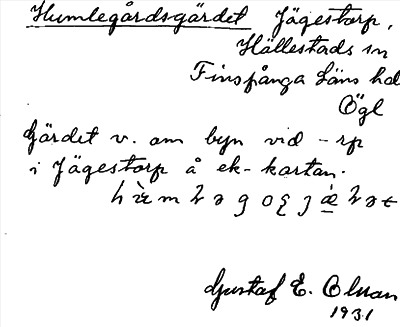 Humlegårdsgärdet Jägestorp,
Hällestads sn
Finspånga läns hd
Ögl
Gärdet v. om byn vid -rp
i Jägestorp å ek-kartan.
Gustaf E. Olsson
1931